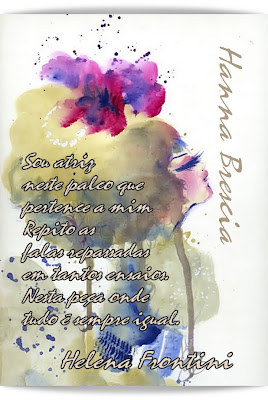 Hanna Brescia
Sou atriz
neste palco que
pertence a mim
Repito as
falas repassadas
em tantos ensaios.
Nesta peça onde
tudo é sempre igual.
Helena Frontini